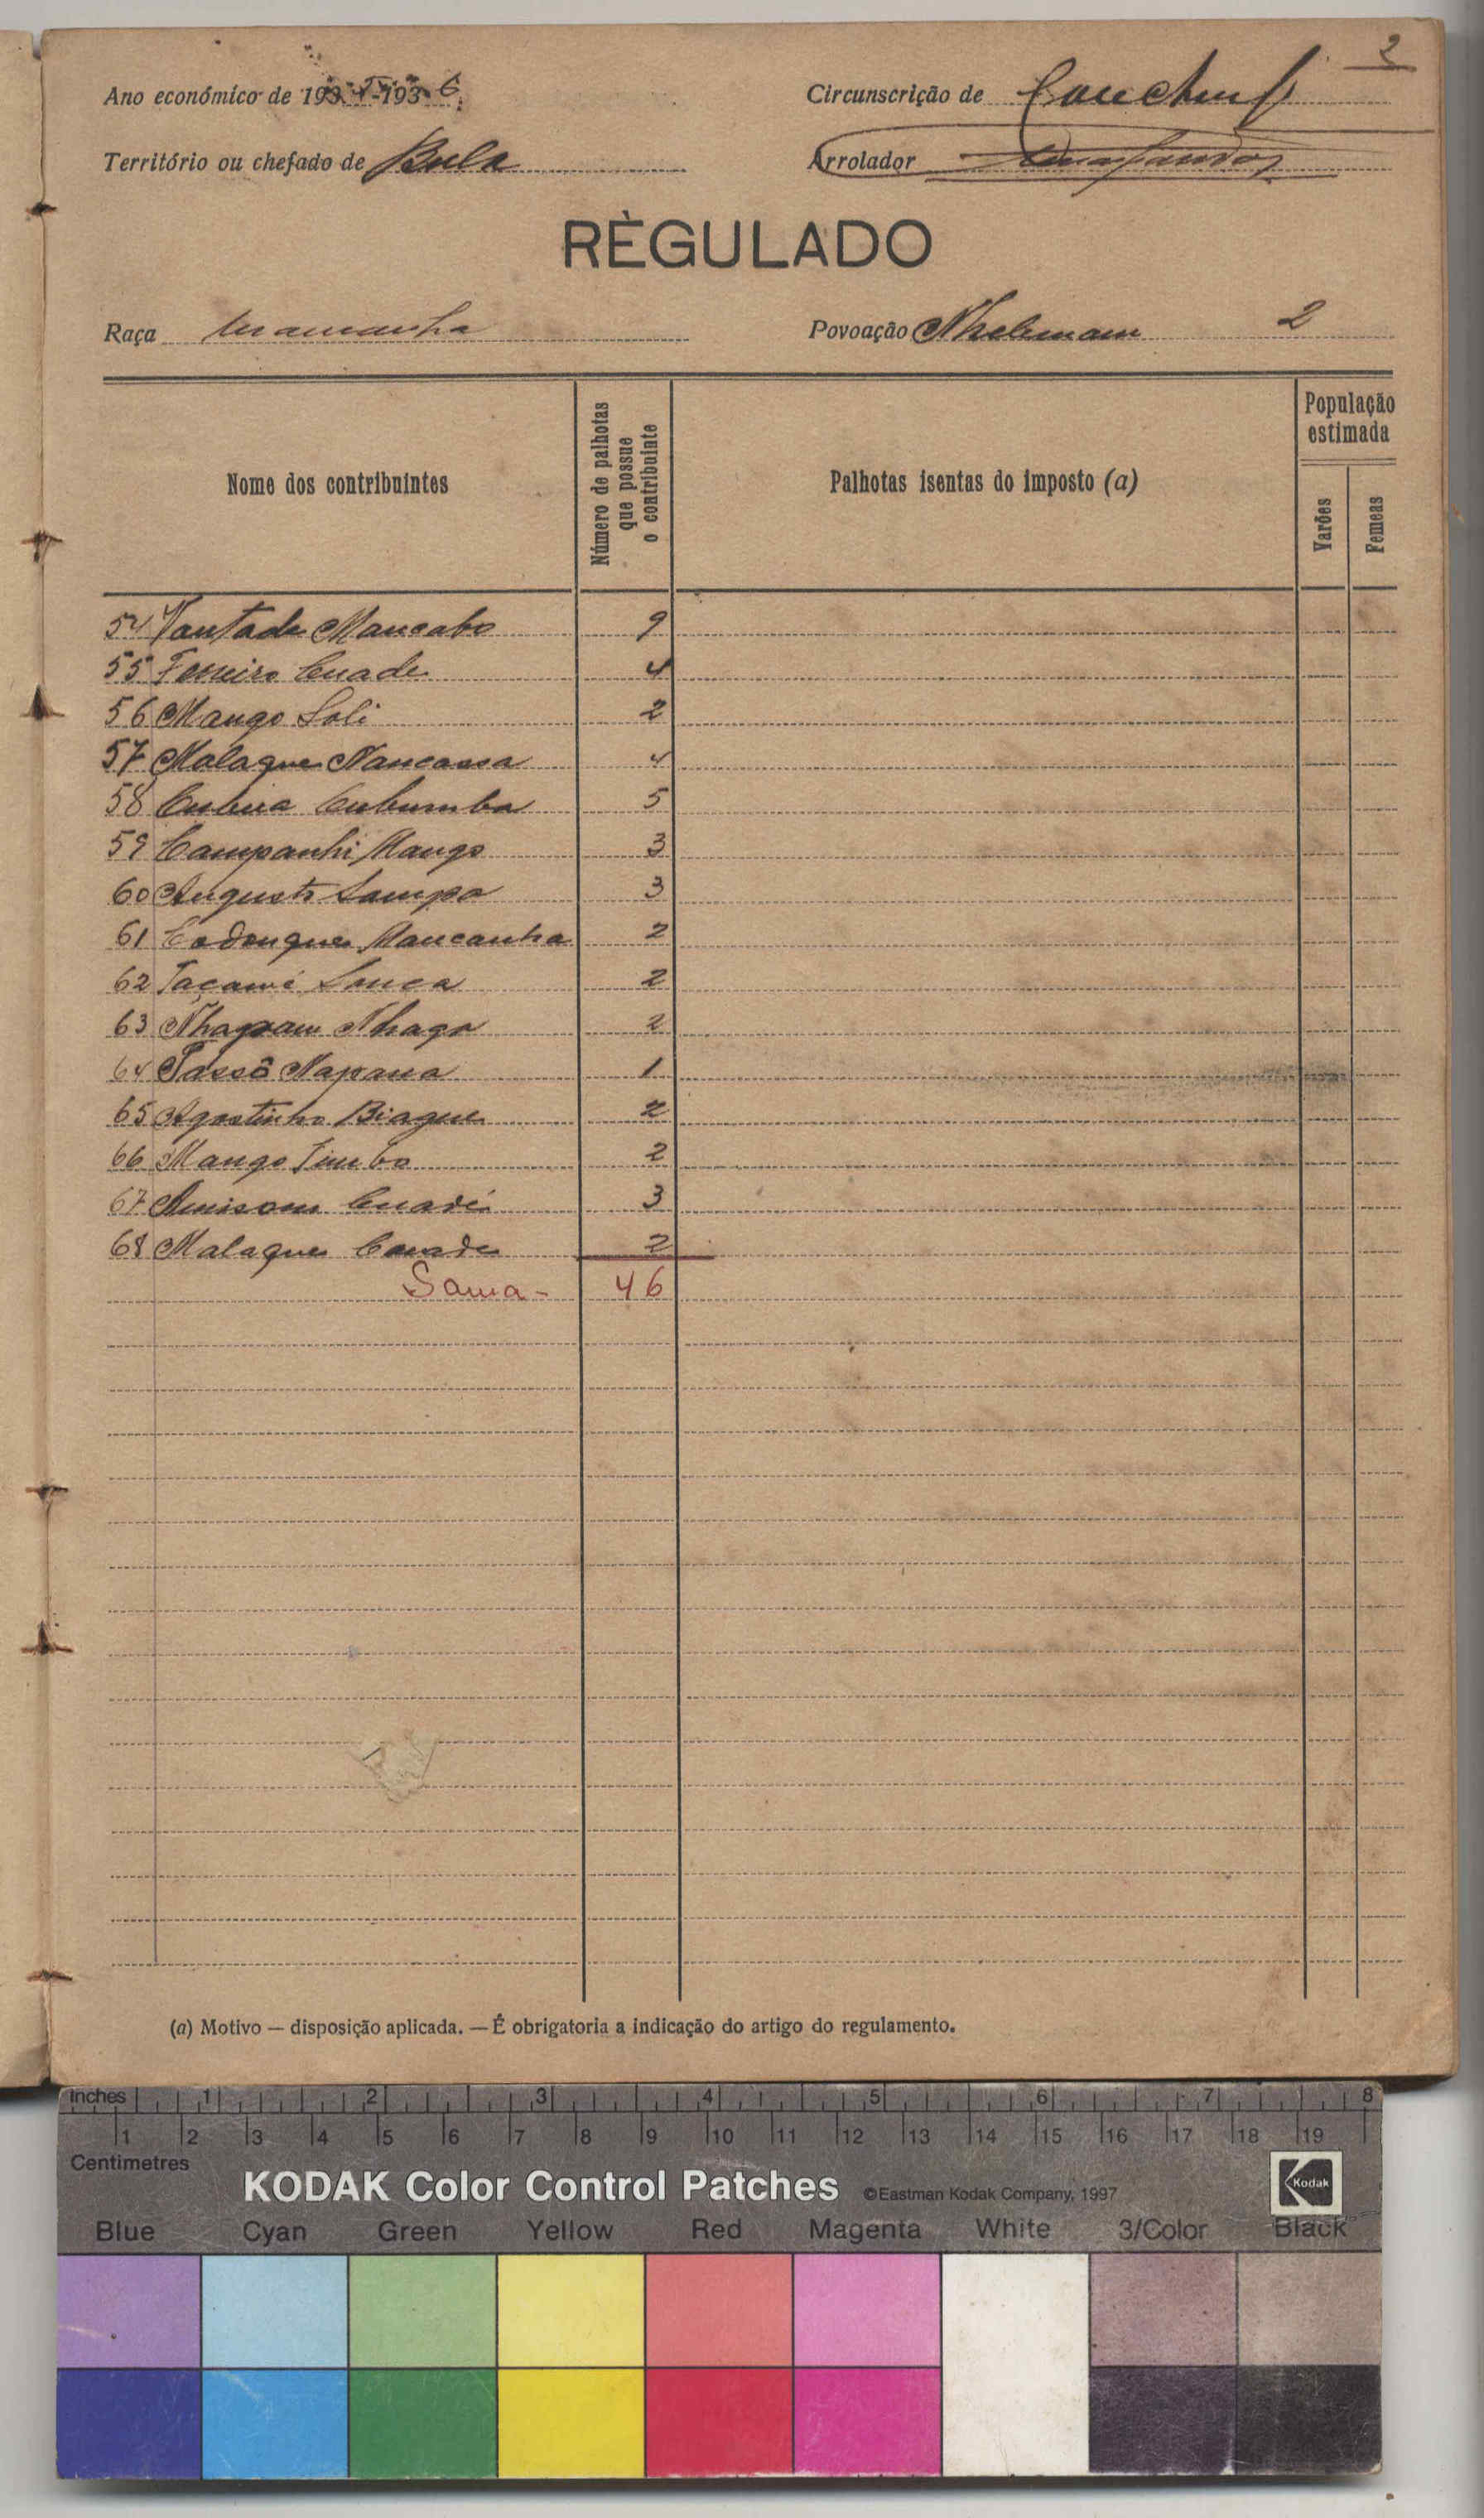 2
Ano económico de 1935-1936
Circunscrição de
Território ou chefado de Bula
Arrolador
RÈGULADO
Raça mancanha
Povoação 2
Nome dos contribuintes
Número de palhotas que possue o contribuinte
Palhotas isentas do imposto (a)
População estimada
Varões
Femeas
54 Mancabo 9
55 Ferreiro Cuade 4
56 Mango Soli 2
57 Malaque Nancassa 4
58 Cubumba 5
59 Campanhi Mango 3
60 Augusto Sampa 3
61 Mancanha 2
62 2
63 2
64 Passô Napana 1
65 Agostinho Biague 2
66 Mango 2
67 3
68 Malaque 2
Soma - 46
(a) Motivo — disposição aplicada. — É obrigatoria a indicação do artigo do regulamento.
Inches 1 2 3 4 5 6 7 8
1 2 3 4 5 6 7 8 9 10 11 12 13 14 15 16 17 18 19
Centimetres
KODAK Color Control Patches ©Eastman Kodak Company, 1997 Kodak
Blue Cyan Green Yellow Red Magenta White 3/Color Black